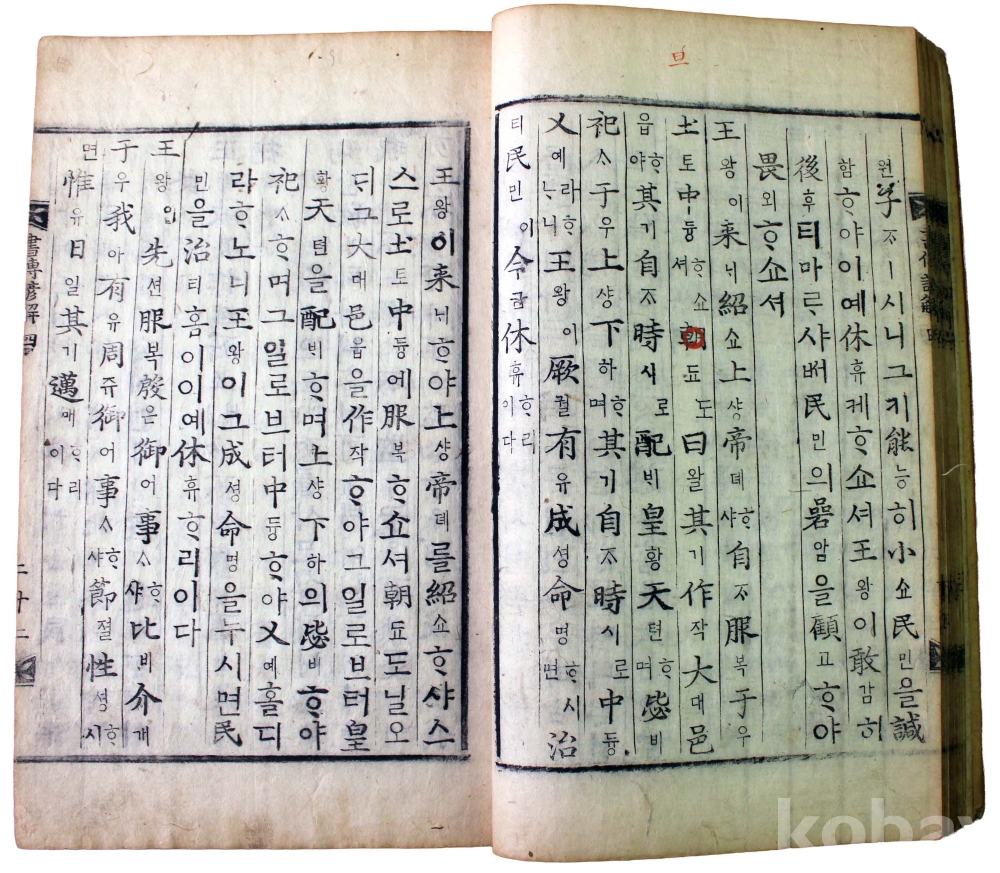 旦
원子ᄌᆞㅣ시니그기能능히小쇼民민을諴
함ᄒᆞ야이예休휴케ᄒᆞ쇼셔王왕이敢감히
後후티마ᄅᆞ샤버民민의碞암을顧고ᄒᆞ야
畏외ᄒᆞ쇼셔
王왕이来ᄂᆡ紹쇼上샹帝뎨ᄒᆞ샤自ᄌᆞ服복于우
土토中듕ᄒᆞ쇼셔朝됴도曰왈其기作작大대邑
읍ᄒᆞ야其기自ᄌᆞ時시로配ᄇᆡ皇황天텬ᄒᆞ며毖비
祀ᄉᆞ于우上샹下하ᄒᆞ며其기自ᄌᆞ時시로中듕
乂예라ᄒᆞᄂᆞ니王왕이厥궐有유成셩命명ᄒᆞ시면治
티民민이今금休휴ᄒᆞ리이다
王왕이来ᄂᆡᄒᆞ야上샹帝뎨를紹쇼ᄒᆞ샤스
스로土토中듕에服복ᄒᆞ쇼셔朝됴도닐오
ᄃᆡ그大대邑읍을作작ᄒᆞ야그일로브터皇
황天텬을配ᄇᆡᄒᆞ며上샹下하의毖비ᄒᆞ야
祀ᄉᆞᄒᆞ며그일로브터中듕ᄒᆞ야乂예홀디
라ᄒᆞ노니王왕이그成셩命명을두시면民
민을治티홈이이예休휴ᄒᆞ리이다
王왕인先션服복殷은御어事ᄉᆞᄒᆞ샤比비介개
于우我아有유周쥬御어事ᄉᆞᄒᆞ샤節졀性셩ᄒᆞ시
면惟유日일其기邁매ᄒᆞ리이다
書傳諺解 四 二十二
kobay